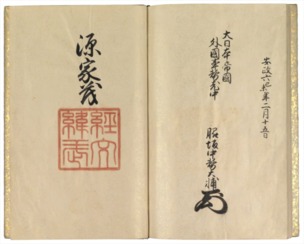 安政六
年
月十五日
大日本帝國
外國事務老中
脇坂中務大輔
源家茂
經文
緯武